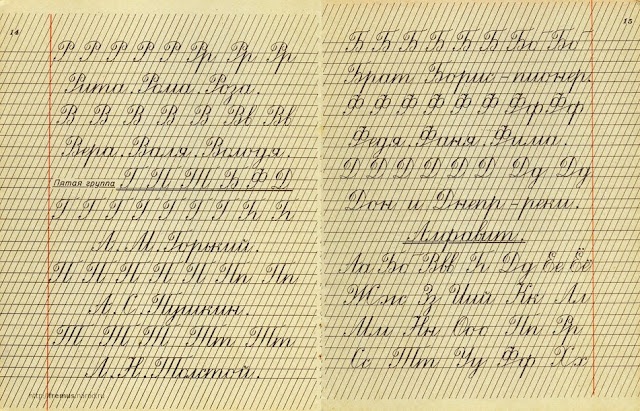 14
Р Р Р Р Р Р Рр Рр Рр
Рита. Рома. Роза.
В В В В В В Вв Вв
Вера. Валя. Володя.
Пятая группа Г П Т Б Ф Д
Г Г Г Г Г Г Г Гг Гг
А. М. Горький.
П П П П П П Пп Пп
А. С. Пушкин.
Т Т Т Т Тт Тт
Л. Н. Толстой.
http://fremus.narod.ru
15
Б Б Б Б Б Б Бб Бб
Брат Борис - пионер.
Ф Ф Ф Ф Ф Ф Фф Фф
Федя. Фаня. Фима.
Д Д Д Д Д Д Дд Дд
Дон и Днепр - реки.
Алфавит.
Аа Бб Вв Гг Дд Ее Ёё
Жж Зз Ии Йй Кк Лл
Мм Нн Оо Пп Рр
Сс Тт Уу Фф Хх